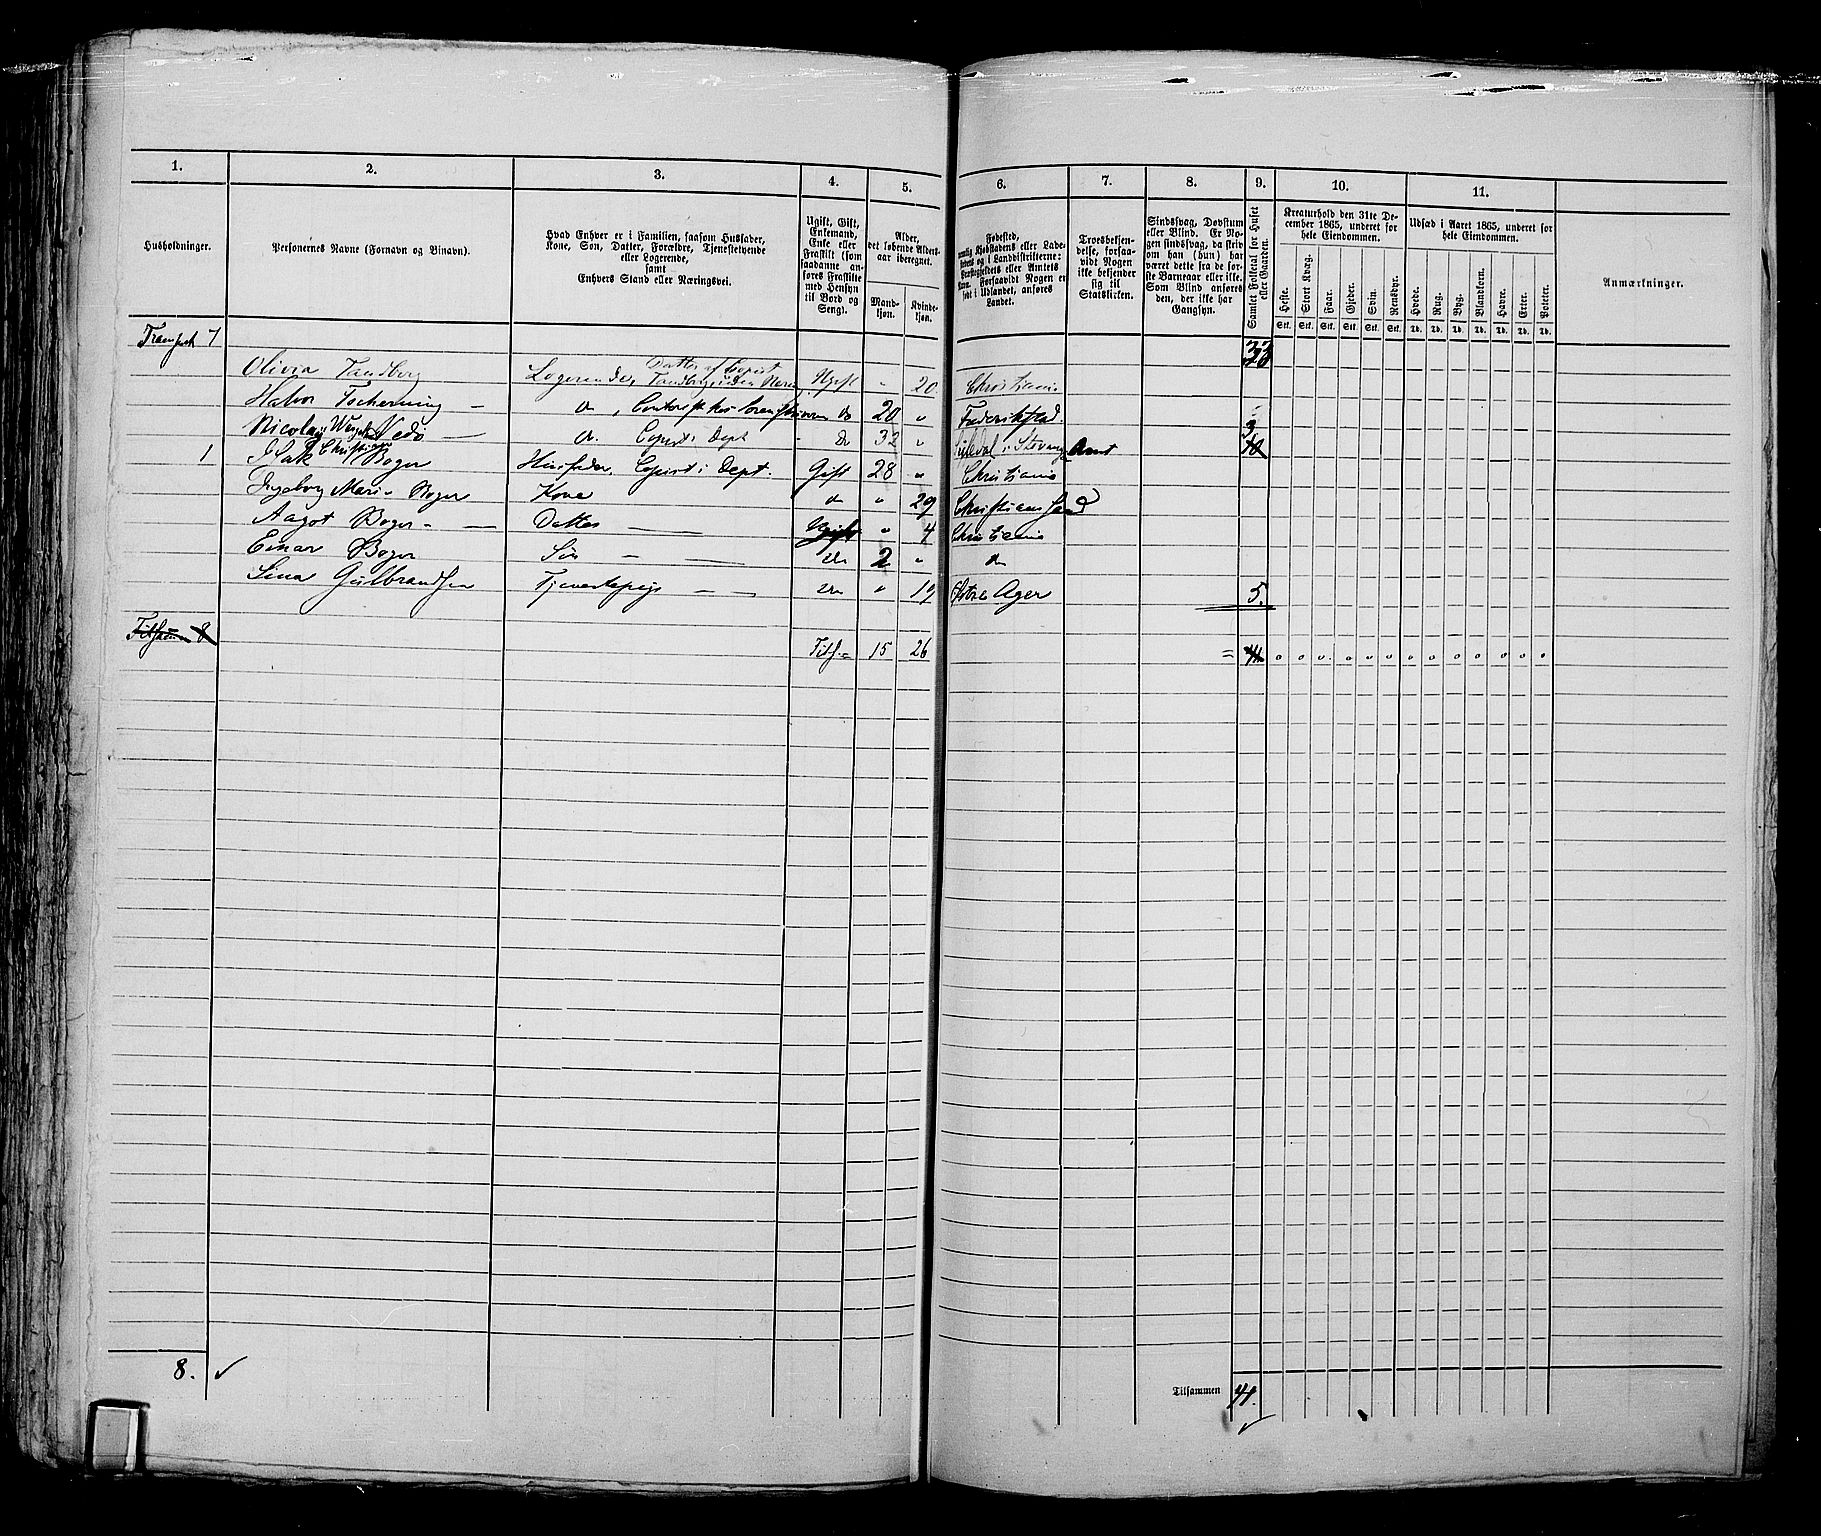 1. 2. 3. 4. 5. 6. 7. 8. 9. 10. 11.
Husholdninger.
Personernes Navne (Fornavn og Binavn).
Hvad Enhver er i Familien, saasom Husfader,
Kone, Søn, Datter, Forældre, Tjenestetyende
eller Logerende,
samt
Enhvers Stand eller Næringsvei.
Ugift, Gift,
Enkemand,
Enke eller
Fraskilt (som
saadanne an-
føres Fraskilte
med Hensyn
til Bord og
Seng).
Alder,
det løbende Alders-
aar iberegnet.
Mand-
kjøn.
Kvinde-
kjøn.
Fødested,
nemlig Kjøbstadens eller Lade-
stedets og i Landdistrikterne:
Præstegjeldets eller Amtets
Navn. Forsaavidt Nogen er
født i Udlandet, anføres
Landet.
Troesbekjen-
delse, forsaa-
vidt Nogen
ikke bekjender
sig til
Statskirken.
Sindssvag, Døvstum
eller Blind. Er No-
gen sindssvag, da skriv
om han (hun) har
været dette fra de før-
ste Barneaar eller ikke.
Som Blind anføres
den, der ikke har
Gangsyn.
Samlet Folketal for Huset
eller Gaarden.
Kreaturhold den 31te De-
cember 1865, underet for
hele Eiendommen.
Heste. Stort Kvæg. Faar. Gjeder. Svin. Rensdyr.
Stk. Stk. Stk. Stk. Stk. Stk.
Udsæd i Aaret 1865, underet for
hele Eiendommen.
Hvede. Rug. Byg. Blandkorn. Havre. Erter. Poteter.
Td. Td. Td. Td. Td. Td. Td.
Anmærkninger.
Transpt 7 33
Olivia Tandberg Logerende, Datter af Copist Tandberg Ugift " 20 Christiania
Halvor Tscherning — do, do 20 " Frederikstad.
Nicolay Vedø — do. Copist i Dept - do 32 " i Stavanger Amt 3
1 Isak Christian Boger Husfader, Copist i Dept. Gift 28 " Christiania
Ingeborg Marie Boger Kone do " 29 Christiansand
Aagot Boger — Datter — Ugift " 4 Christiania
Einar Boger Søn — do 2 " do
Lina Gulbrandsen Tjenestepige — do " 19 Østre Ager 5.
Tilsam 8
Tils. = 15 26 = 41 o o o o o o o o o o o o o
8. ✓
Tilsammen 41.
✓